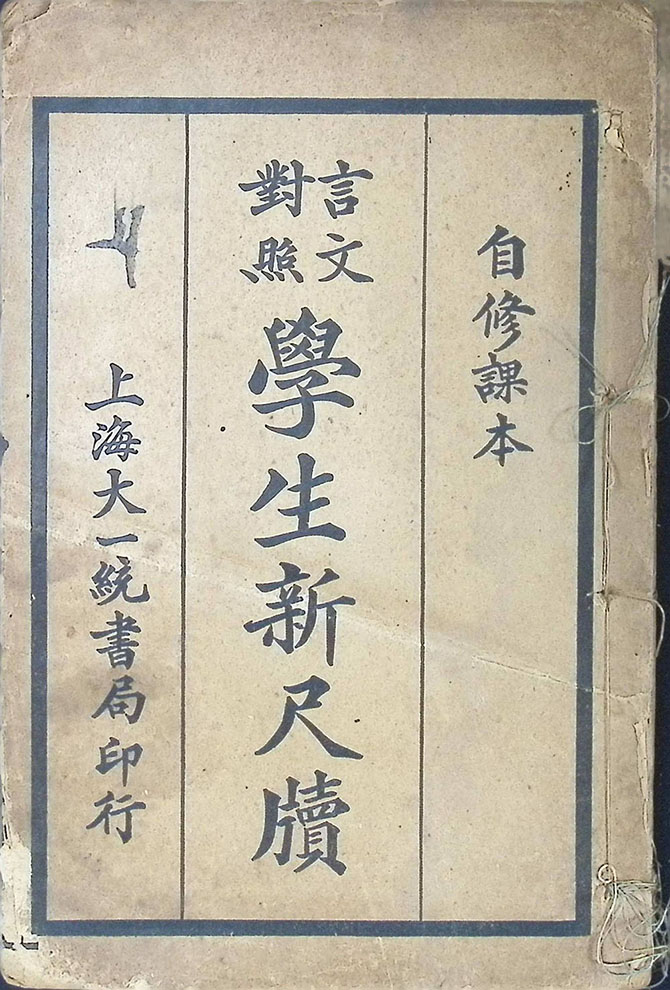 自修課本
言文
對照
學生新尺牘
上海大一統書局印行